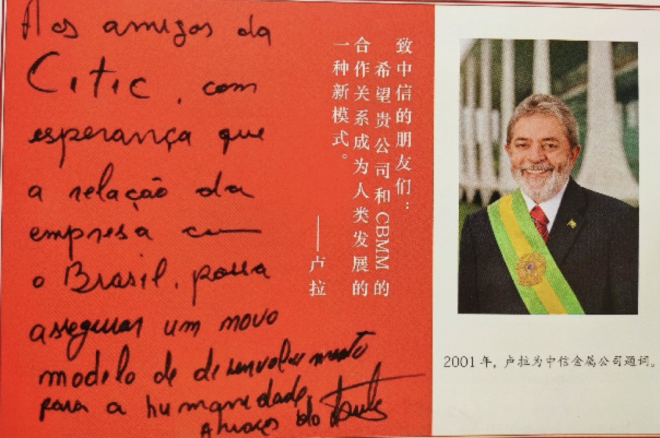 Aos amigos da
Citic, com
esperança que
a relação da
empresa com
o Brasil, possa
assegurar um novo
modelo de desenvolvimento
para a humanidade,
Abraços do Lula
致中信的朋友们：
希望贵公司和CBMM的
合作关系成为人类发展的
一种新模式。
——卢拉
2001 年，卢拉为中信金属公司题词。